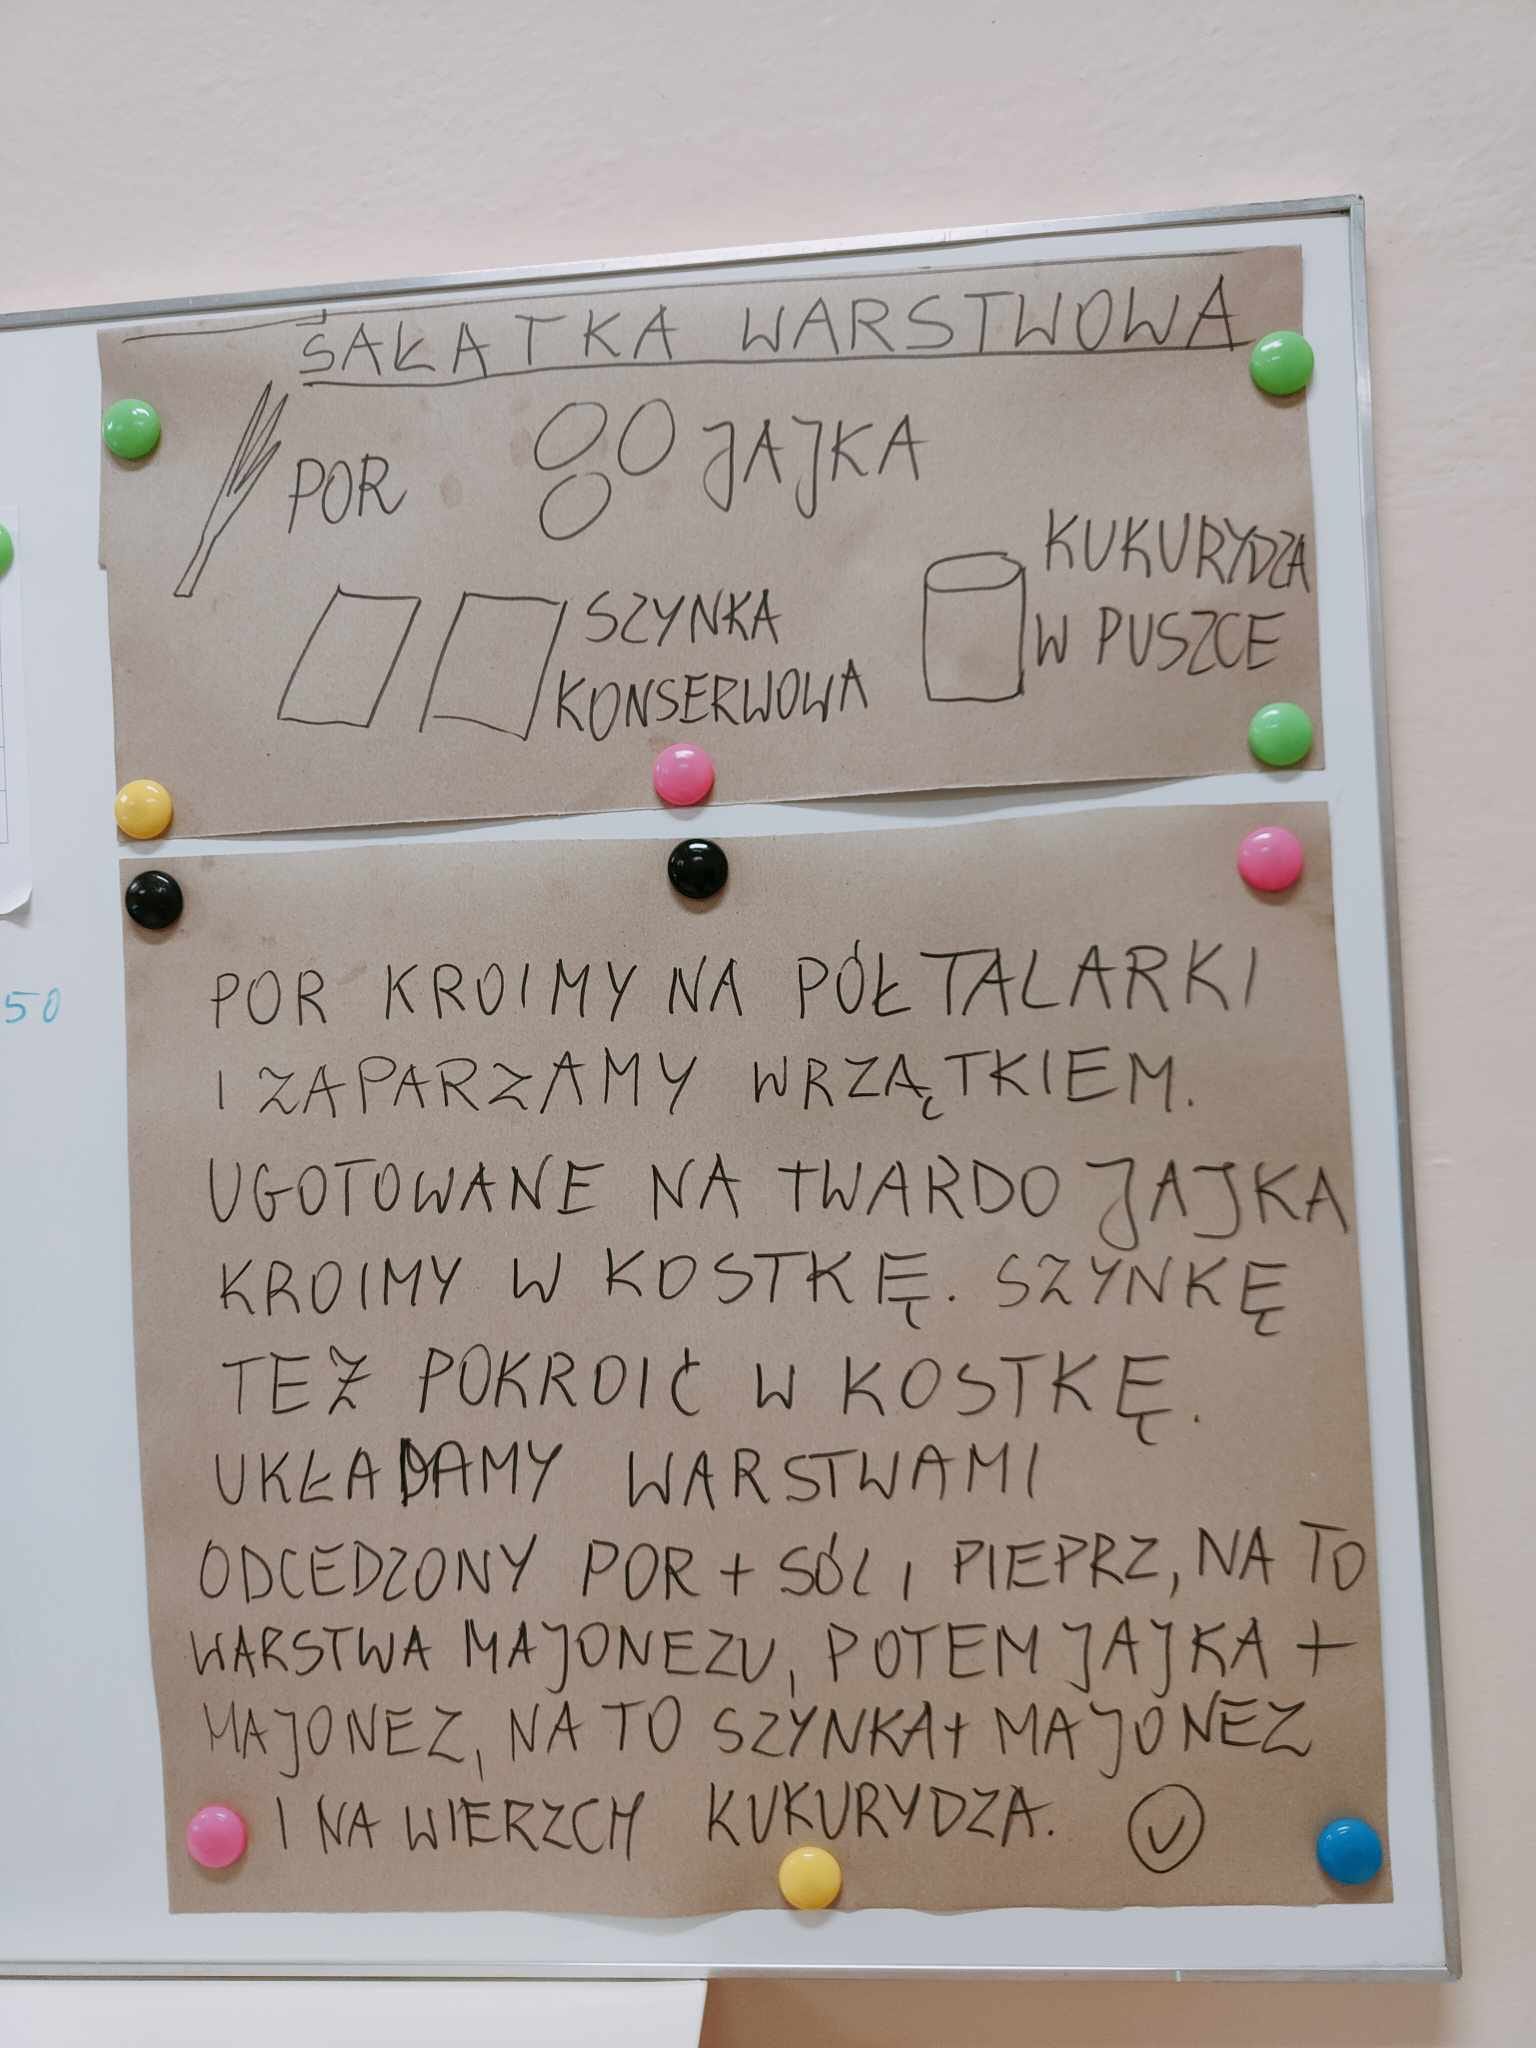 SAŁATKA WARSTWOWA
POR
JAJKA
SZYNKA
KONSERWOWA
KUKURYDZA
W PUSZCE
POR KROIMY NA PÓŁTALARKI
I ZAPARZAMY WRZĄTKIEM.
UGOTOWANE NA TWARDO JAJKA
KROIMY W KOSTKĘ. SZYNKĘ
TEŻ POKROIĆ W KOSTKĘ.
UKŁADAMY WARSTWAMI
ODCEDZONY POR + SÓL I PIEPRZ, NA TO
WARSTWA MAJONEZU, POTEM JAJKA +
MAJONEZ, NA TO SZYNKA + MAJONEZ
I NA WIERZCH KUKURYDZA.
50